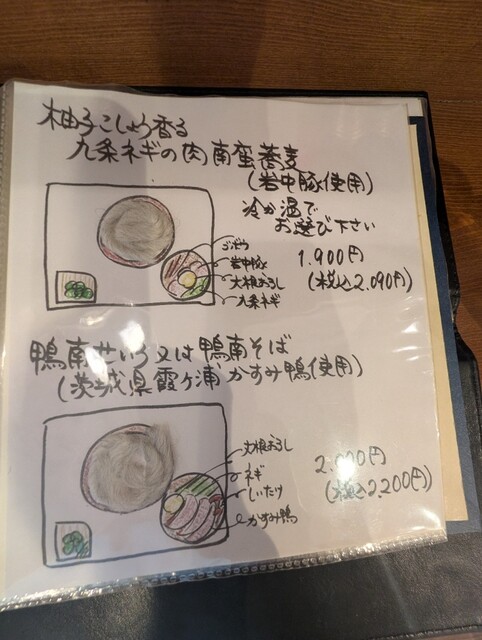 柚子こしょう香る
九条ネギの肉南蛮蕎麦
(岩中豚使用)
冷か温で
お選び下さい
ゴボウ
岩中豚
大根おろし
九条ネギ
1.900円
(税込2.090円)
鴨南せいろ又は鴨南そば
(茨城県霞ヶ浦かすみ鴨使用)
大根おろし
ネギ
しいたけ
かすみ鴨
2.000円
(税込2.200円)